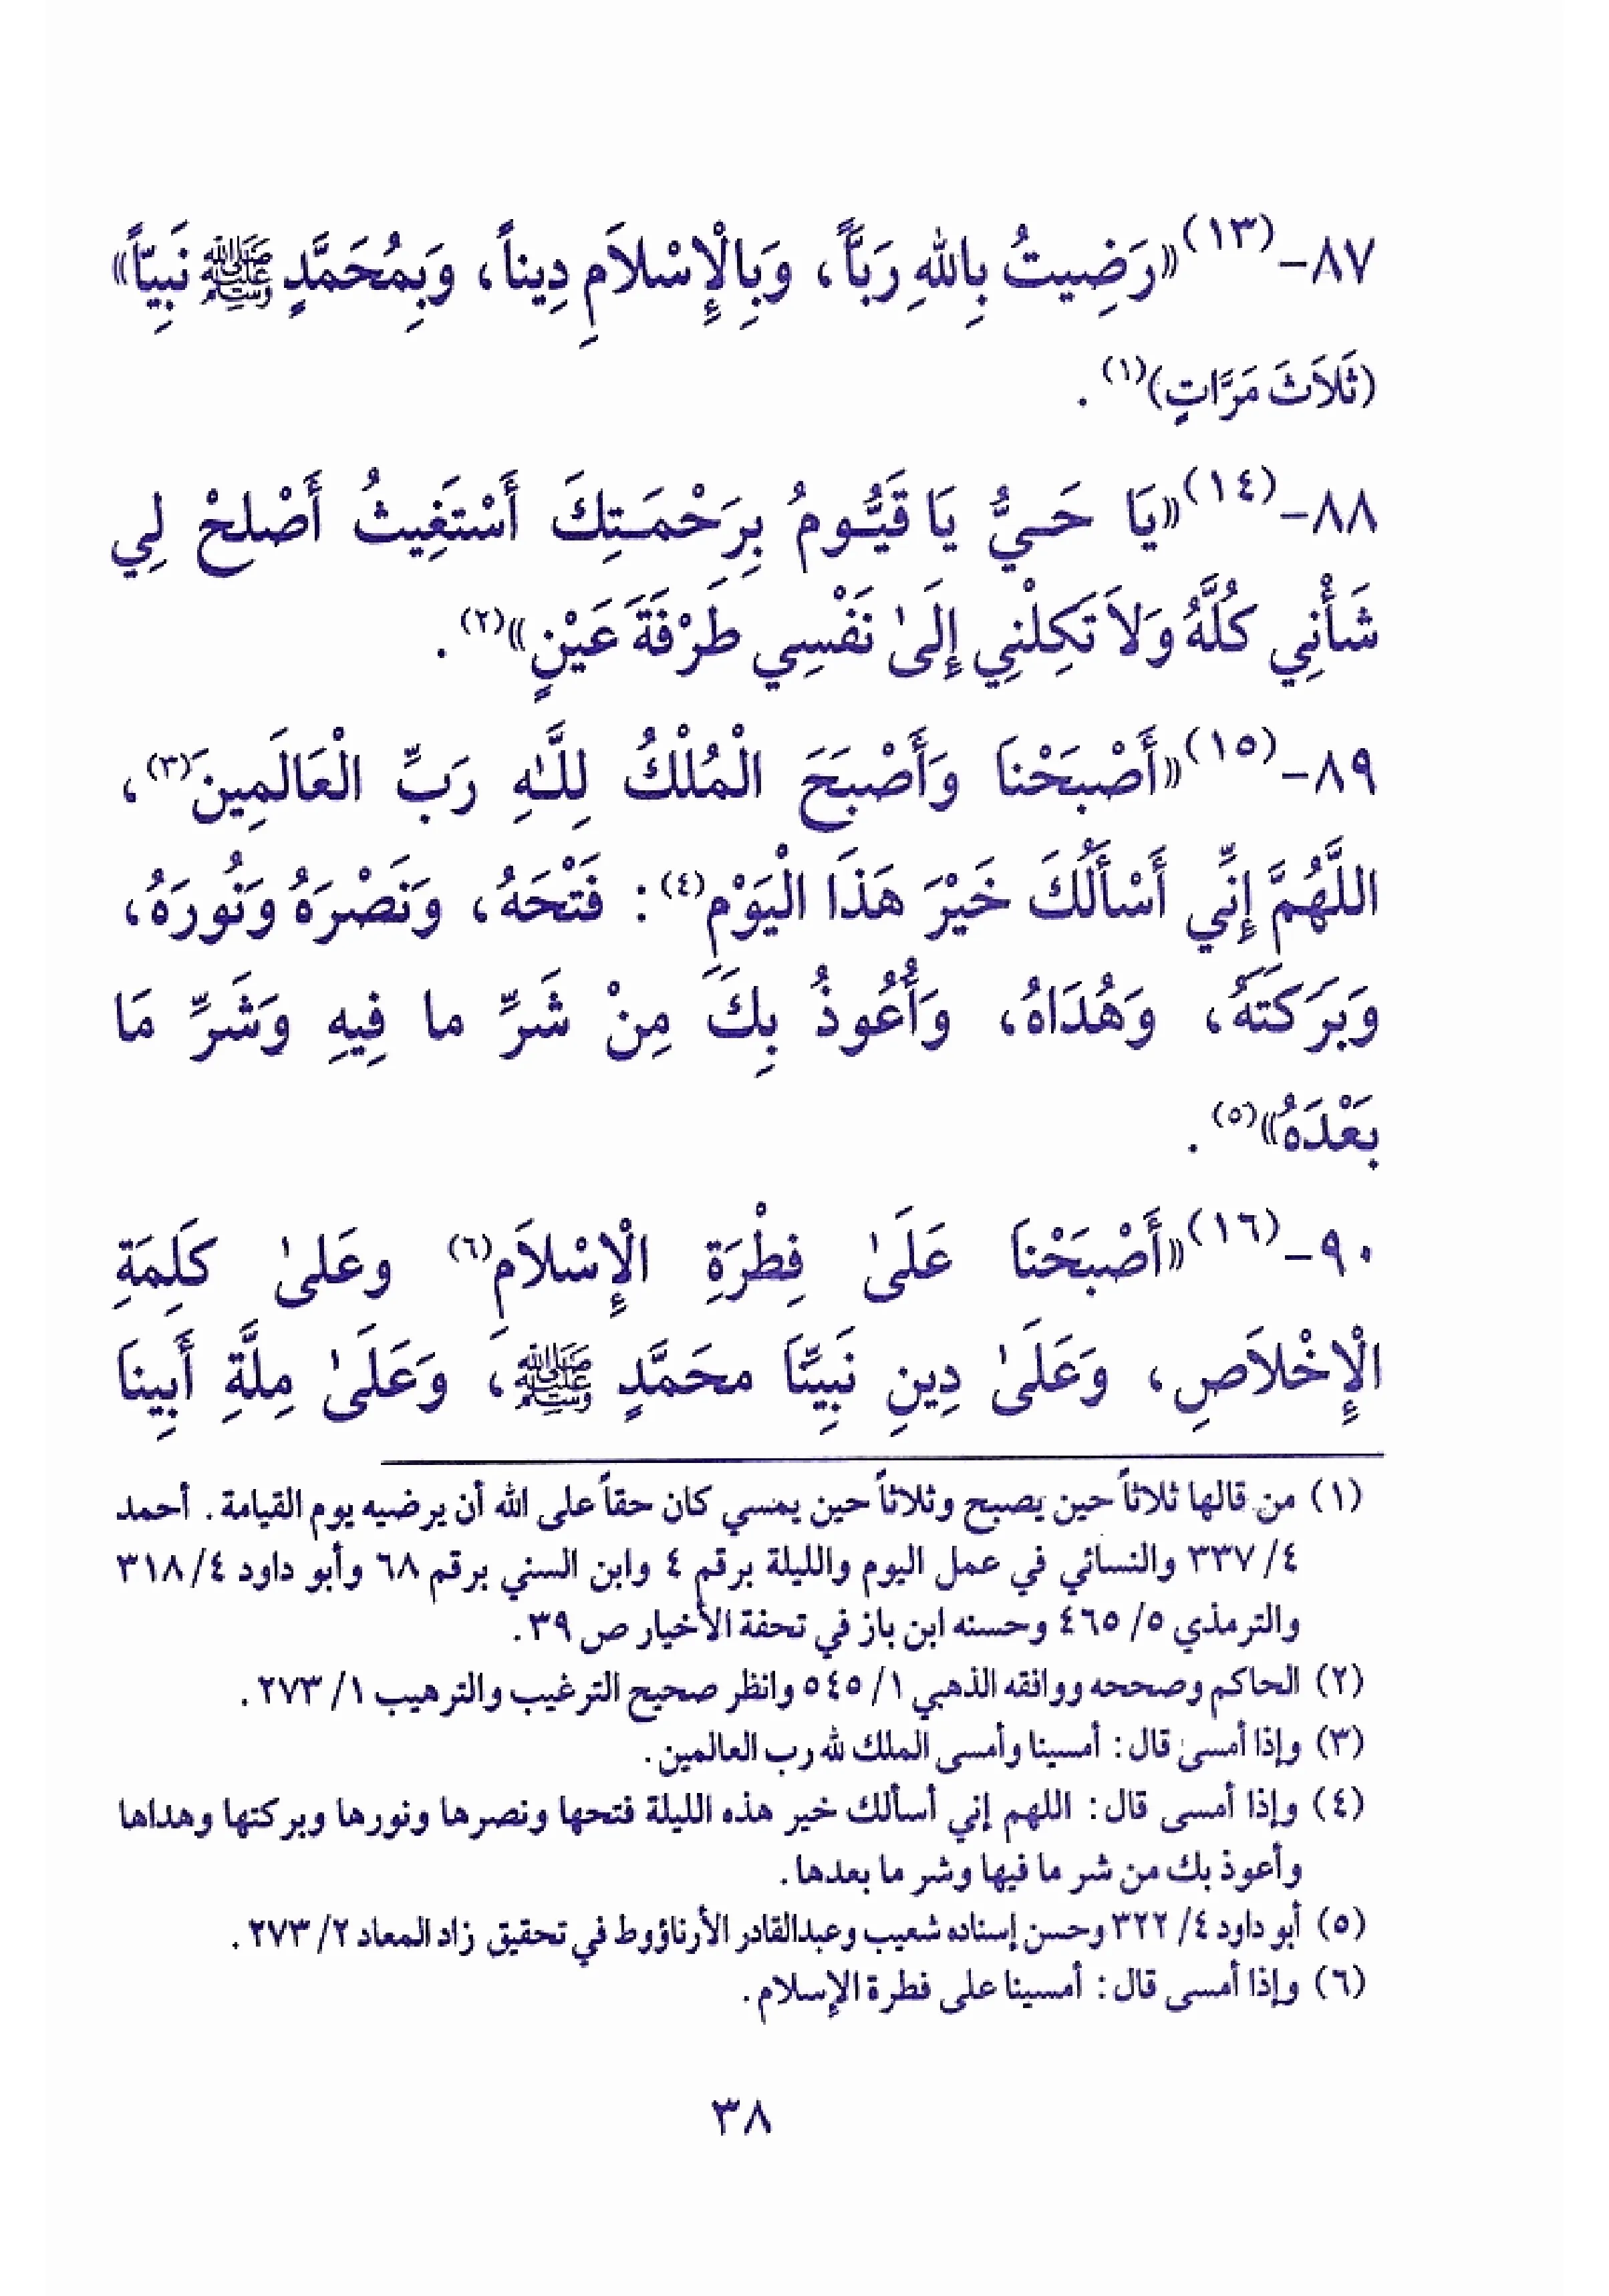 ٨٧-(١٣)«رَضِيتُ بِاللهِ رَبَّاً، وَبِالْإِسْلاَمِ دِيناً، وَبِمُحَمَّدٍ ﷺ نَبِيّاً»
(ثَلاَثَ مَرَّاتٍ)(١).
٨٨-(١٤)«يَا حَيُّ يَا قَيُّومُ بِرَحْمَتِكَ أَسْتَغِيثُ أَصْلِحْ لِي
شَأْنِي كُلَّهُ وَلاَ تَكِلْنِي إِلَىٰ نَفْسِي طَرْفَةَ عَيْنٍ»(٢).
٨٩-(١٥)«أَصْبَحْنَا وَأَصْبَحَ الْمُلْكُ لِلَّهِ رَبِّ الْعَالَمِينَ(٣)،
اللَّهُمَّ إِنِّي أَسْأَلُكَ خَيْرَ هَذَا الْيَوْمِ(٤): فَتْحَهُ، وَنَصْرَهُ وَنُورَهُ،
وَبَرَكَتَهُ، وَهُدَاهُ، وَأَعُوذُ بِكَ مِنْ شَرِّ ما فِيهِ وَشَرِّ مَا
بَعْدَهُ»(٥).
٩٠-(١٦)«أَصْبَحْنَا عَلَىٰ فِطْرَةِ الْإِسْلاَمِ(٦) وعَلىٰ كَلِمَةِ
الْإِخْلاَصِ، وَعَلَىٰ دِينِ نَبِيِّنَا محَمَّدٍ ﷺ، وَعَلَىٰ مِلَّةِ أَبِينَا
(١) من قالها ثلاثاً حين يصبح وثلاثاً حين يمسي كان حقاً على الله أن يرضيه يوم القيامة. أحمد
٤/ ٣٣٧ والنسائي في عمل اليوم والليلة برقم ٤ وابن السني برقم ٦٨ وأبو داود ٤/ ٣١٨
والترمذي ٥/ ٤٦٥ وحسنه ابن باز في تحفة الأخيار ص ٣٩.
(٢) الحاكم وصححه ووافقه الذهبي ١/ ٥٤٥ وانظر صحيح الترغيب والترهيب ١/ ٢٧٣.
(٣) وإذا أمسى قال: أمسينا وأمسى الملك لله رب العالمين.
(٤) وإذا أمسى قال: اللهم إني أسألك خير هذه الليلة فتحها ونصرها ونورها وبركتها وهداها
وأعوذ بك من شر ما فيها وشر ما بعدها.
(٥) أبو داود ٤/ ٣٢٢ وحسن إسناده شعيب وعبدالقادر الأرناؤوط في تحقيق زاد المعاد ٢/ ٢٧٣.
(٦) وإذا أمسى قال: أمسينا على فطرة الإسلام.
٣٨